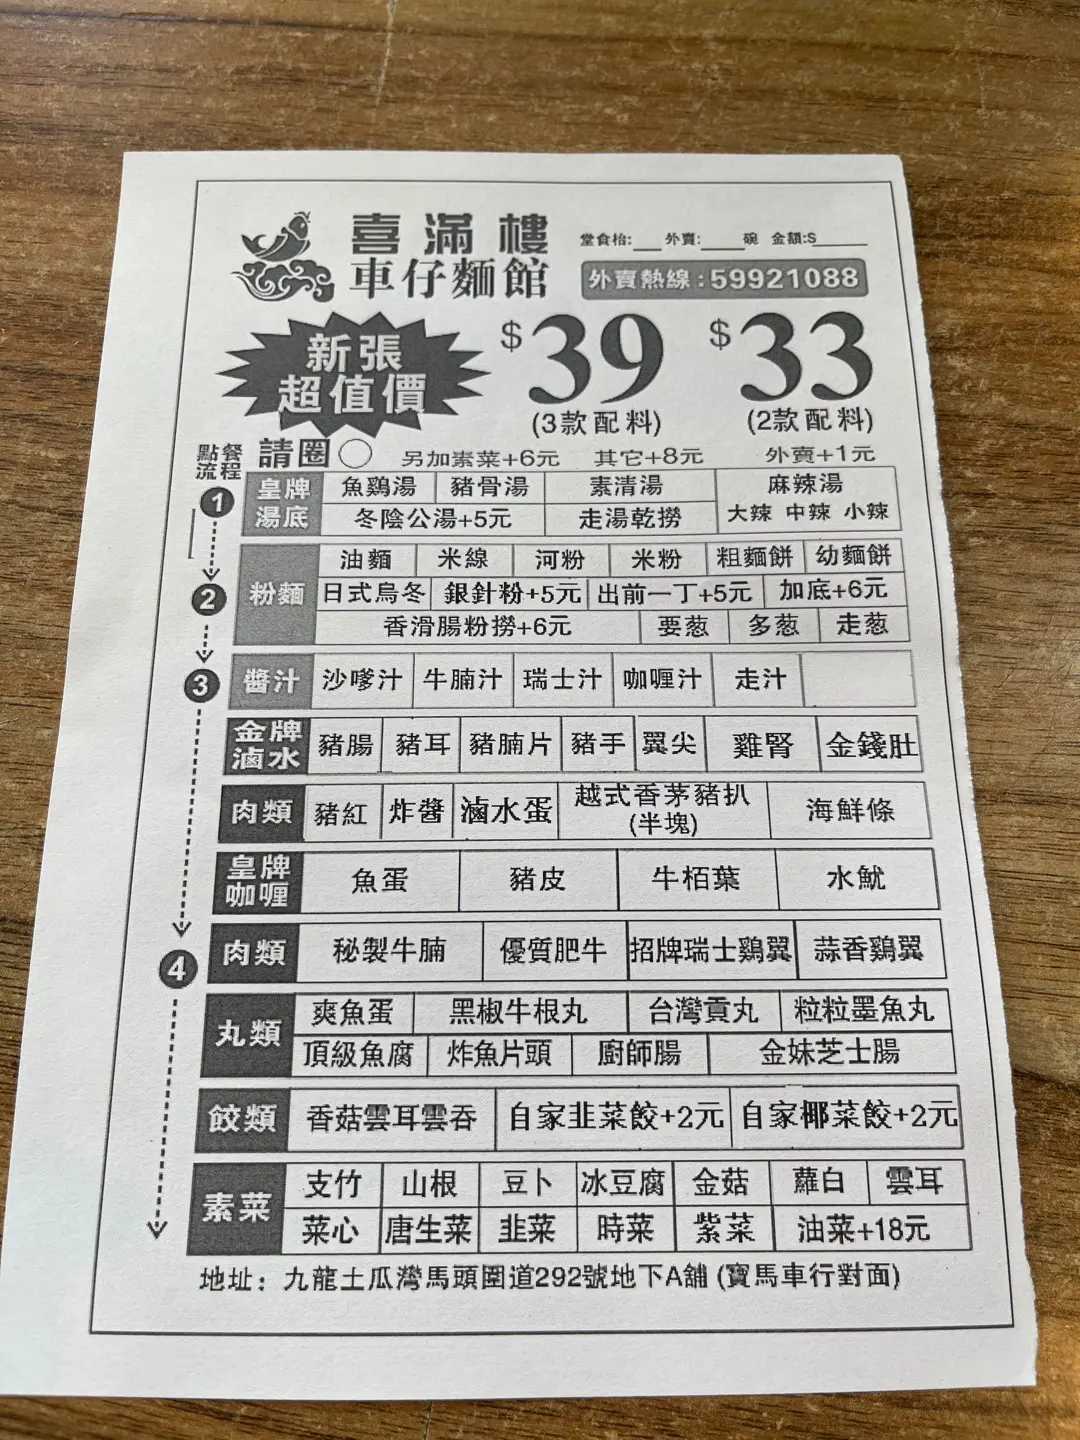 喜滿樓
車仔麵館
堂食枱:___ 外賣:____碗 金額:$_____
外賣熱線:59921088
新張
超值價
$39
(3款配料)
$33
(2款配料)
點餐
流程
請圈○ 另加素菜+6元 其它+8元 外賣+1元
1
皇牌
湯底
魚鷄湯 豬骨湯 素清湯
麻辣湯
大辣 中辣 小辣
冬陰公湯+5元 走湯乾撈
2
粉麵
油麵 米線 河粉 米粉 粗麵餅 幼麵餅
日式烏冬 銀針粉+5元 出前一丁+5元 加底+6元
香滑腸粉撈+6元 要葱 多葱 走葱
3
醬汁 沙嗲汁 牛腩汁 瑞士汁 咖喱汁 走汁
金牌
滷水
豬腸 豬耳 豬腩片 豬手 翼尖 雞腎 金錢肚
肉類 豬紅 炸醬 滷水蛋
越式香茅豬扒
(半塊)
海鮮條
皇牌
咖喱
魚蛋 豬皮 牛栢葉 水魷
4
肉類 秘製牛腩 優質肥牛 招牌瑞士鷄翼 蒜香鷄翼
丸類
爽魚蛋 黑椒牛根丸 台灣貢丸 粒粒墨魚丸
頂級魚腐 炸魚片頭 廚師腸 金妹芝士腸
餃類 香菇雲耳雲吞 自家韭菜餃+2元 自家椰菜餃+2元
素菜
支竹 山根 豆卜 冰豆腐 金菇 蘿白 雲耳
菜心 唐生菜 韭菜 時菜 紫菜 油菜+18元
地址：九龍土瓜灣馬頭圍道292號地下A舖 (寶馬車行對面)